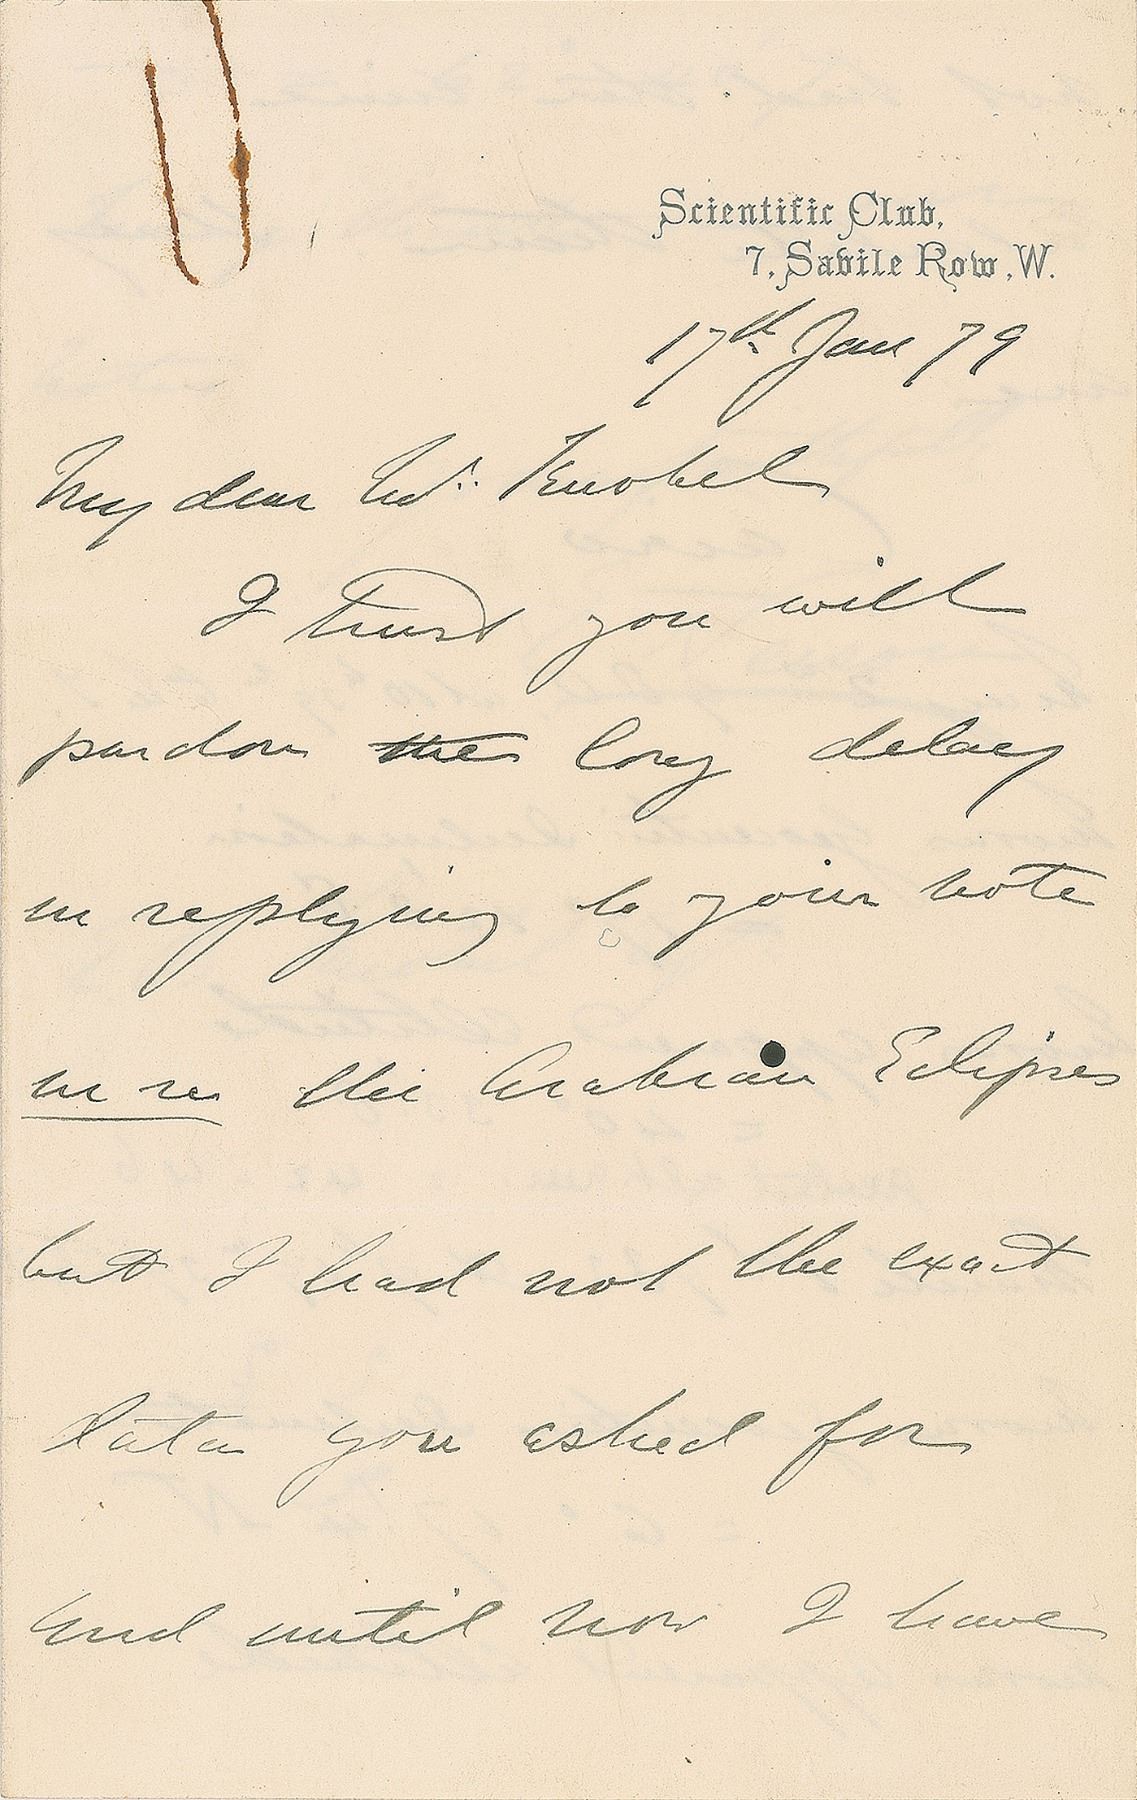 Scientific Club,
7, Savile Row, W.
17th Jan 79
My dear Mr. Knobel
I trust you will
pardon the long delay
in replying to your note
in re the Arabian Eclipses
but I had not the exact
data you asked for
and until now I have